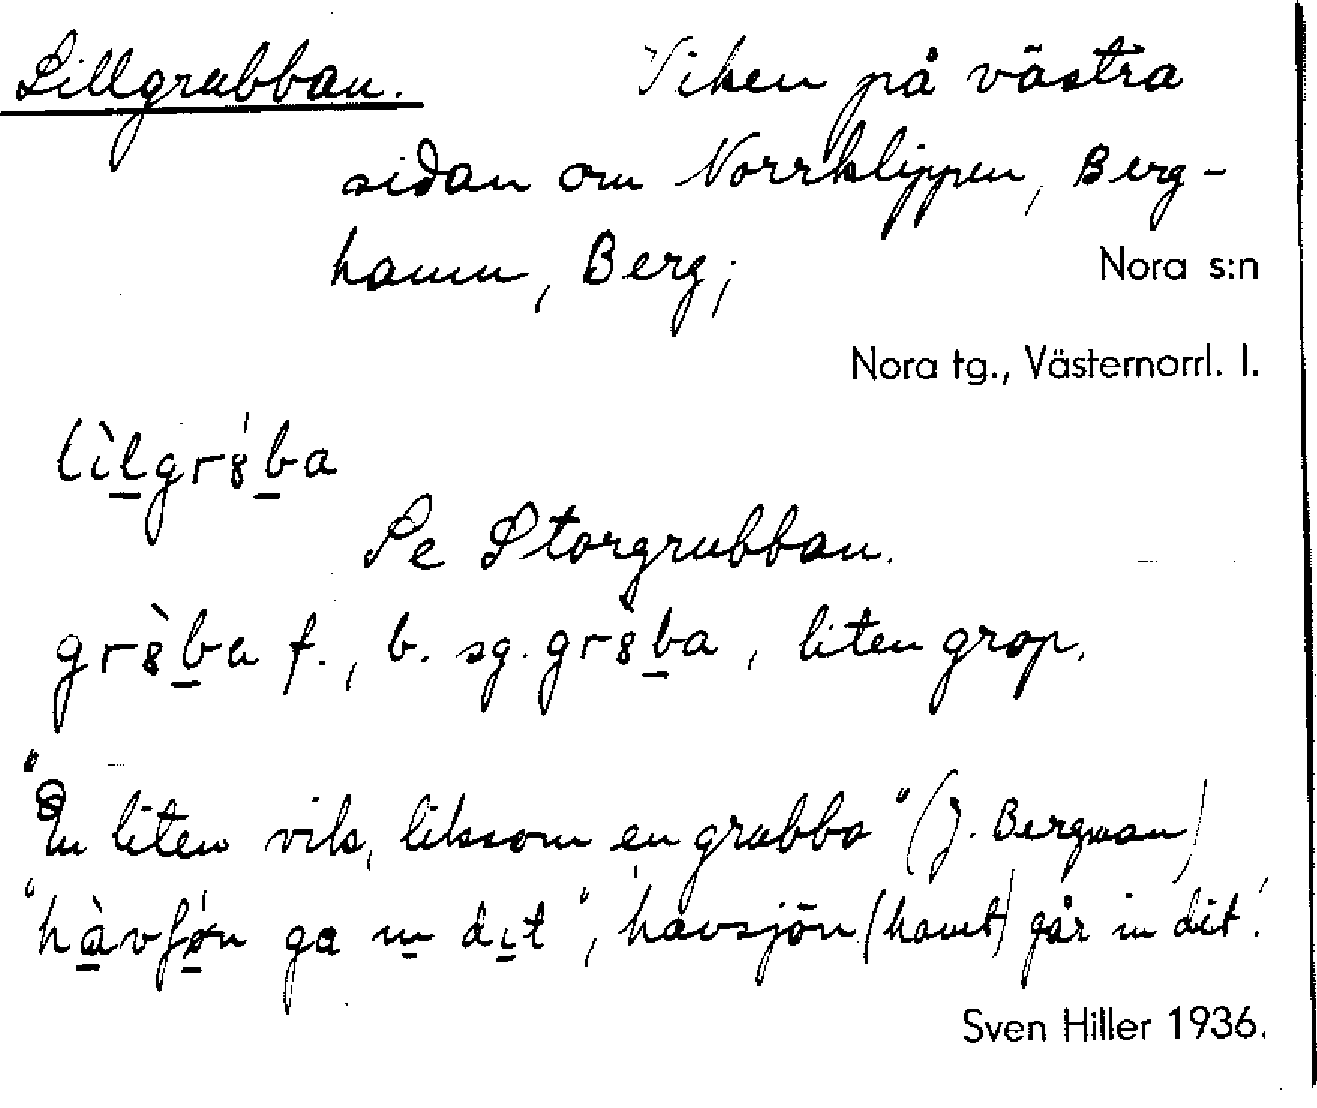 Lillgrubban. Viken på västra
sidan om Norrklippen, Berg-
hamn, Berg;
Nora s:n
Nora tg., Västernorrl. l.
lìlgr8́ba
Se Storgrubban.
gr8̀ba f., b. sg. gr8̀ba, liten grop.
"En liten vik, liksom en grubba" (J. Bergman)
"hàvʃǿn ga ın dıt", 'havsjön (havet) går in dit'.
Sven Hiller 1936.